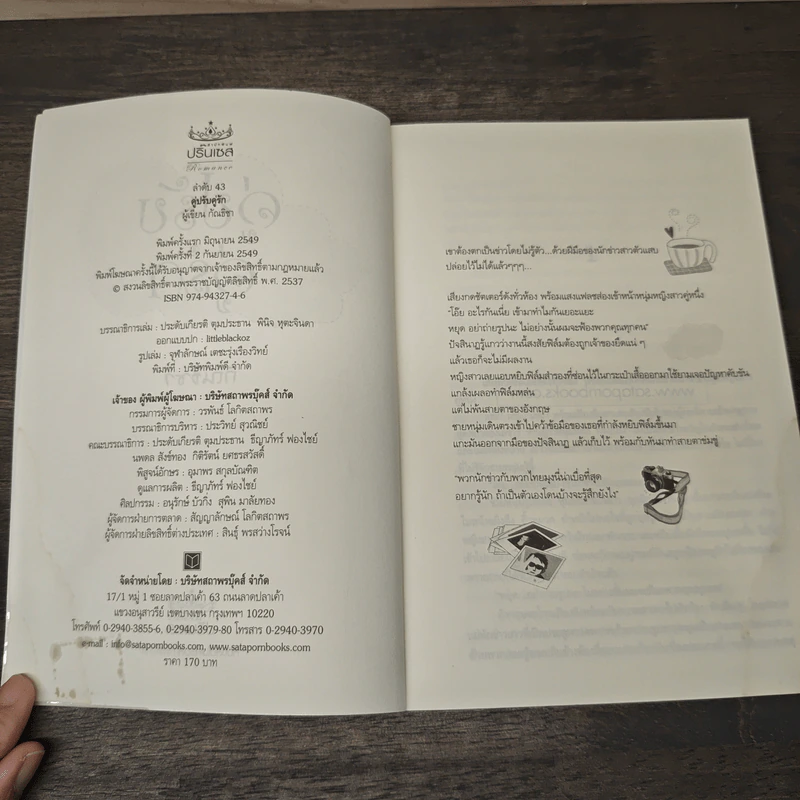 สถาพรบุ๊คส์
ปริ๊นเซส
Romance
ลำดับ 43
คู่ปรับคู่รัก
ผู้เขียน กัณธิชา
พิมพ์ครั้งแรก มิถุนายน 2549
พิมพ์ครั้งที่ 2 กันยายน 2549
พิมพ์โฆษณาครั้งนี้ได้รับอนุญาตจากเจ้าของลิขสิทธิ์ตามกฎหมายแล้ว
© สงวนลิขสิทธิ์ตามพระราชบัญญัติลิขสิทธิ์ พ.ศ. 2537
ISBN 974-94327-4-6
บรรณาธิการเล่ม : ประดับเกียรติ ตุมประธาน พินิจ หุตะจินดา
ออกแบบปก : littleblackoz
รูปเล่ม : จุฬาลักษณ์ เตชะรุ่งเรืองวิทย์
พิมพ์ที่ : บริษัทพิมพ์ดี จำกัด
เจ้าของ ผู้พิมพ์ผู้โฆษณา : บริษัทสถาพรบุ๊คส์ จำกัด
กรรมการผู้จัดการ : วรพันธ์ โลกิตสถาพร
บรรณาธิการบริหาร : ประวิทย์ สุวณิชย์
คณะบรรณาธิการ : ประดับเกียรติ ตุมประธาน ธีญาภัทร์ ฟองไชย์
นพดล สังข์ทอง กิติรัตน์ ยศธรสวัสดิ์
พิสูจน์อักษร : อุมาพร สกุลบัณฑิต
ดูแลการผลิต : ธีญาภัทร์ ฟองไชย์
ศิลปกรรม : อนุรักษ์ บัวกิ่ง สุพิน มาลัยทอง
ผู้จัดการฝ่ายการตลาด : สัญญาลักษณ์ โลกิตสถาพร
ผู้จัดการฝ่ายลิขสิทธิ์ต่างประเทศ : สินธุ์ พรสว่างโรจน์
จัดจำหน่ายโดย : บริษัทสถาพรบุ๊คส์ จำกัด
17/1 หมู่ 1 ซอยลาดปลาเค้า 63 ถนนลาดปลาเค้า
แขวงอนุสาวรีย์ เขตบางเขน กรุงเทพฯ 10220
โทรศัพท์ 0-2940-3855-6, 0-2940-3979-80 โทรสาร 0-2940-3970
e-mail : info@satapornbooks.com, www.satapornbooks.com
ราคา 170 บาท
เขาต้องตกเป็นข่าวโดยไม่รู้ตัว...ด้วยฝีมือของนักข่าวสาวตัวแสบ
ปล่อยไว้ไม่ได้แล้วๆๆๆ...
เสียงกดชัตเตอร์ดังทั่วห้อง พร้อมแสงแฟลชส่องเข้าหน้าหนุ่มหญิงสาวคู่หนึ่ง
"โอ๊ย อะไรกันเนี่ย เข้ามาทำไมกันเยอะแยะ
หยุด อย่าถ่ายรูปนะ ไม่อย่างนั้นผมจะฟ้องพวกคุณทุกคน"
ปัจสินาฏรู้แกวว่างานนี้สงสัยฟิล์มต้องถูกเจ้าของยึดแน่ ๆ
แล้วเธอก็จะไม่มีผลงาน
หญิงสาวเลยแอบหยิบฟิล์มสำรองที่ซ่อนไว้ในกระเป๋าเสื้อออกมาใช้ยามเจอปัญหาคับขัน
แกล้งเผลอทำฟิล์มหล่น
แต่ไม่พ้นสายตาของอังกฤษ
ชายหนุ่มเดินตรงเข้าไปคว้าข้อมือของเธอที่กำลังหยิบฟิล์มขึ้นมา
แกะมันออกจากมือของปัจสินาฏ แล้วเก็บไว้ พร้อมกับหันมาทำสายตาข่มขู่
"พวกนักข่าวกับพวกไทยมุงนี่น่าเบื่อที่สุด
อยากรู้นัก ถ้าเป็นตัวเองโดนบ้างจะรู้สึกยังไง"